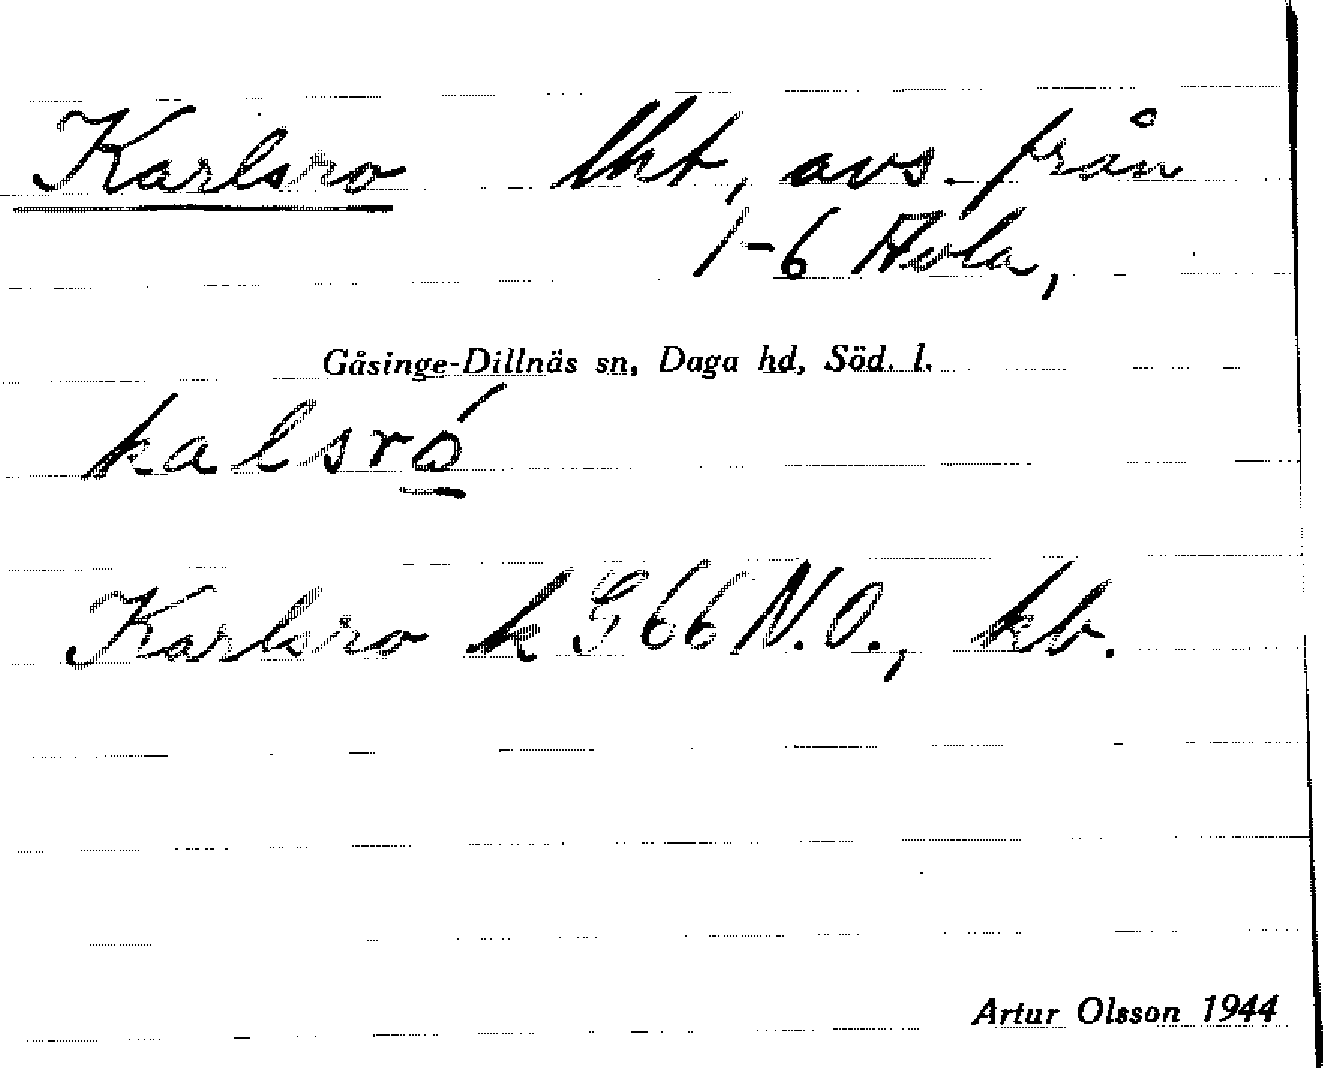 Karlsro lht, avs. från
1-6 Hvla,
Gåsinge-Dillnäs sn, Daga hd, Söd. l.
kalsró
Karlsro k G66 N.O., kb.
Artur Olsson 1944